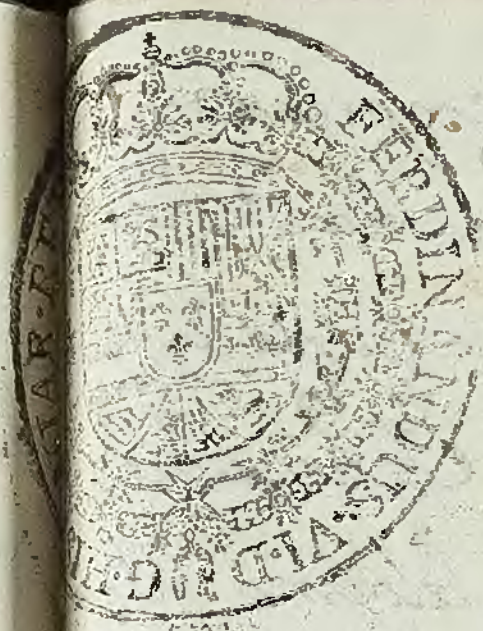 FERDINANDUS·VI·D·G·H
AR·RE